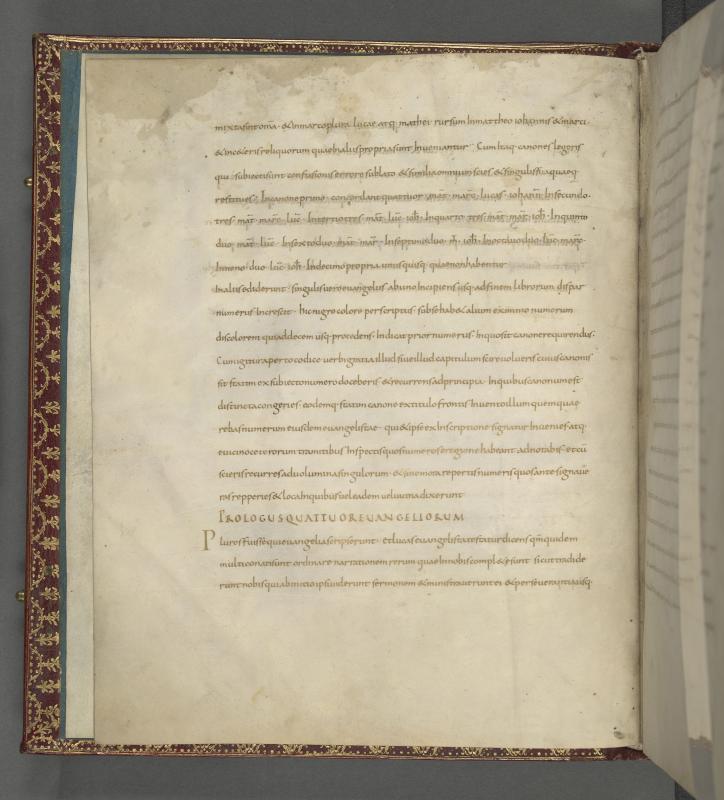 mixta sint om̄a · & in marco plura lucae atq; mathei rursum In mattheo iohannis & marci ·
& in ceteris reliquorum quae In aliis propria sunt Inveniantur · Cum Itaq· canones legeris
qui subiecti sunt confusionis errore sublato & similia omnium scies & singulis sua quaeq·
restitues · In canone primo concordant quattuor · mat̄ · marc̄ · lucas · iohann̄ · In secundo ·
tres · mat̄ · marc̄ · luc̄ · In tertio tres · mat̄ · luc̄ · ioh̄ · In quarto tres · mat̄ · mar̄ · ioh̄ · In quinto
duo · mat̄ · luc̄ · In sexto duo · mat̄ · mar̄ · In septimo duo · m̄ · ioh̄ · In octavo duo · luc̄ · marc̄ ·
In nono · duo · luc̄ · ioh̄ · In decimo propria unusquisq· quae non habentur
In aliis ediderunt · singulis vero evangeliis ab uno Incipiens usq· ad finem librorum dispar
numerus Increscit · hic nigro colore perscriptus · sub se hab& alium ex minio numerum
discolorem qui ad decem usq· procedens · Indicat prior numerus · In quo sit canone requirendus ·
Cum igitur aperto codice verbi gratia illud sive illud capitulum scire volueris cuius canonis
sit statim ex subiecto numero doceberis & recurrens ad principia · In quibus canonum est
distincta congeries · eodemq· statim canone ex titulo frontis Invento illum quem quae
rebas numerum eiusdem evangelistae · qui & ipse ex Inscriptione signatur Invenies atq·
e vicino ceterorum tramitibus Inspectis quos numeros e regione habeant adnotabis · et cū
scieris recurres ad volumina singulorum · & sine mora repertis numeris quos ante signave
ras repperies & loca In quibus vel eadem vel vicina dixerunt
PROLOGUS QUATTUOR EVANGELIORUM
Plures fuisse qui evangelia scripserunt · et lucas evangelista testatur dicens qm̄ quidem
multi conati sunt ordinare narrationem rerum quae In nobis compl&ae sunt sicut tradide
runt nobis qui ab Initio ipsi viderunt sermonem & ministraverunt ei & perseverantia usq·